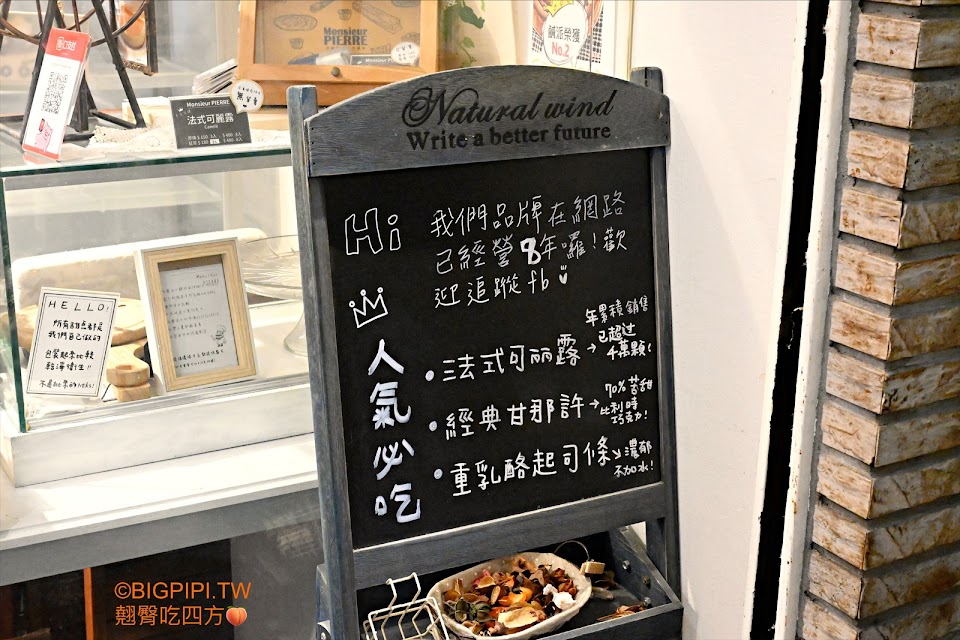 Monsieur
PIERRE
鹹派榮獲
No.2
Monsieur PIERRE
法式可麗露
Canelé
Natural wind
Write a better future
Hi
我們品牌在網路
已經營8年囉!歡
迎追蹤fb
人氣必吃
•法式可丽露→
年累積銷售
已超过
千萬顆!
•經典甘那許→
70%苦甜
比利時
巧克力!
•重乳酪起司條↘
濃郁
不加水!
HELLO!
所有甜点都是
我們自己做的
包裝起來比較
給薄衛生!!
©BIGPIPI.TW
翹臀吃四方🍑